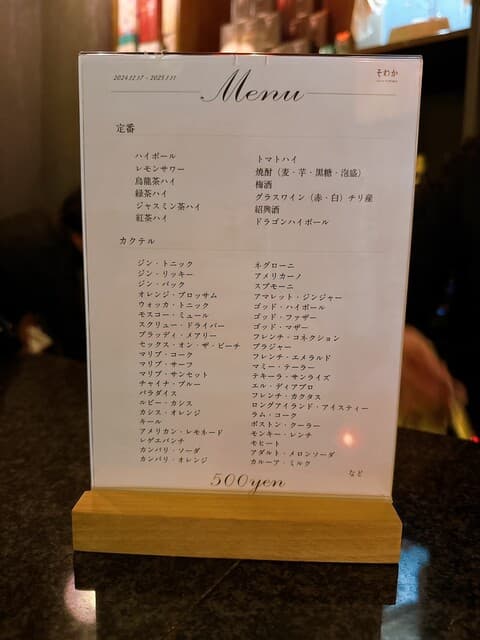 2024.12.17 - 2025.1.11
そわか
Menu
定番
ハイボール
レモンサワー
烏龍茶ハイ
緑茶ハイ
ジャスミン茶ハイ
紅茶ハイ
トマトハイ
焼酎（麦・芋・黒糖・泡盛）
梅酒
グラスワイン（赤・白）チリ産
紹興酒
ドラゴンハイボール
カクテル
ジン・トニック
ジン・リッキー
ジン・バック
オレンジ・ブロッサム
ウォッカ・トニック
モスコー・ミュール
スクリュー・ドライバー
ブラッディ・メアリー
セックス・オン・ザ・ビーチ
マリブ・コーク
マリブ・サーフ
マリブ・サンセット
チャイナ・ブルー
パラダイス
ルビー・カシス
カシス・オレンジ
キール
アメリカン・レモネード
レゲエパンチ
カンパリ・ソーダ
カンパリ・オレンジ
ネグローニ
アメリカーノ
スプモーニ
アマレット・ジンジャー
ゴッド・ハイボール
ゴッド・ファザー
ゴッド・マザー
フレンチ・コネクション
ブラジャー
フレンチ・エメラルド
マミー・テーラー
テキーラ・サンライズ
エル・ディアブロ
フレンチ・カクタス
ロングアイランド・アイスティー
ラム・コーク
ボストン・クーラー
モンキー・レンチ
モヒート
アダルト・メロンソーダ
カルーア・ミルク
など
500yen